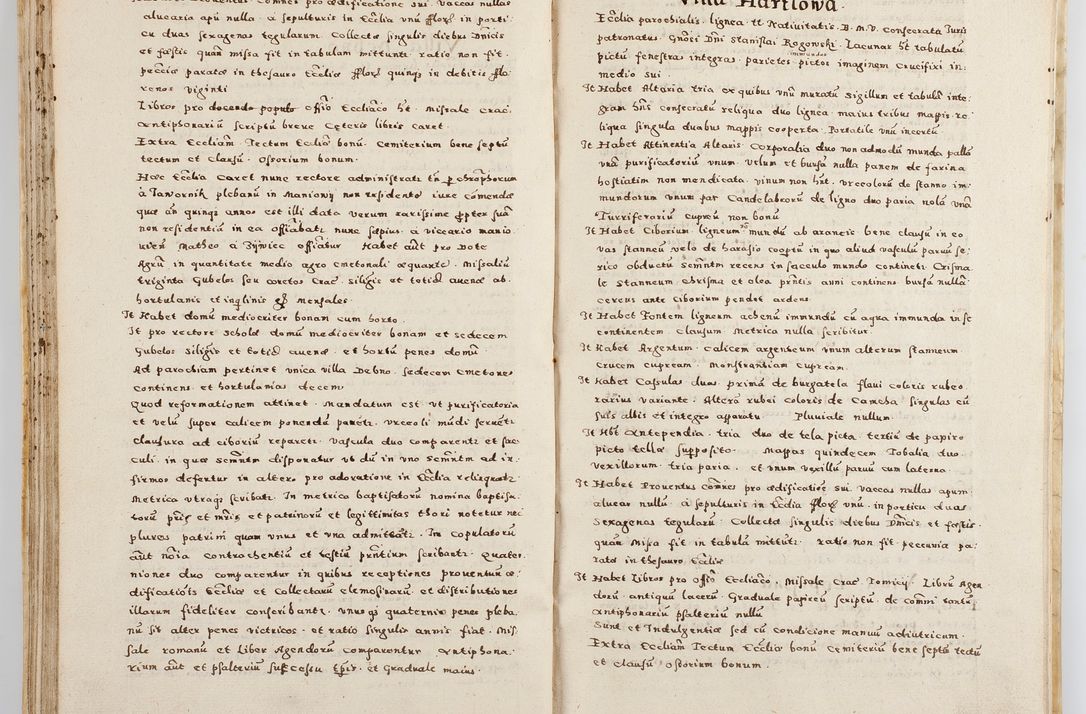 alucaria apū nulla · a sepulturis in Eccliā vnū fflorꝫ in porti
cu duas sexagenas tegularum Collecta singulis diebus Dnīcis
et fæstis quan missa fit in tabulam mittunt · ratio non fit ·
peccia parata in thesauro Eccliæ fflorꝫ quinqꝫ in debitis fflo
renos viginti
Libros pro docendo populo offio Eccliaco ht · Missale Crac̄
Antiphonariū scriptū breve Ceteris libris caret ·
Extra Ecclīam Tectum Eccliæ bonū · Cemiterium bene septū
tectum et Clausū · Ossorium bonum ·
Hæc Ecclīa Caret nunc rectore administrati
à Jawornik plebanū in Maniowy non residente iure comendæ
quæ an quinqꝫ annos est illi data verum rarissime propter suā
non residentiā in ea offīabatr nunc sæpius · a viccario manio
vien Matheo a Zÿwiec offīatur Habet aūt pro Dote
Agrū in quantitate medio agro cmetonali æquatæ · Missaliū
triginta Cubelos seu coretos Crac̄ siligis et totid avenæ ab
hortulanis et inqlinis mensales ·
It Habet domū mediocriter bonam cum horto ·
It pro rectore scholæ domū mediocriter bonam et sedecem
Cubelos siligis et totid avenæ · et hortū penes domū ·
Ad parochiam pertinet vnica villa Debno · sedecem Cmetones
continens · et hortulanias decem
Quod reformationem attinet · Mandatum est vt purificatoria
et velū super calicem ponendū paretr · vrceoli mūdi servetr
Clausura ad ciboriū reparetr · vascula duo comparentr et sac
culi · in quæ Semntm disponatur vt dū in vno Semntm ad in:
firmos defertur in altero pro adoratione in Ecclīa relinquatr
Metrica vtraqꝫ scribatr · In metrica baptisatorū nomina baptisa:
torū pris et mris et patrinorū et legittimitas thori notetur nec
plures patrini quam vnus et vna admittatr · In copulatorū
aūt noīa contrahentiū et testiū pntium scribantr · Quater
niones duo comparentur in quibus receptiones proventuū æ:
dificatiois Eccliæ et Collectarū elemosinarū · et distributiones
illarum fideliter conscribantr · vnus qꝫ quaternio penes pleba
nū sit alter penes victricos · et ratio singulis annis fiat · Mis
sale romanū et Liber Agendorū Comparentur Antiphona·
rium aūt et psalteriū successu tpris · et Graduale maius ·
Villa Harklowa ·
Ecclīa parochialis · lignea · tt Nativitatis · B · M · V · Consecrata Juris
patronatus · Gnosci Dni Stanislai Rogowski · Lacunar ht tabulatū
pictū fenestras integras · parietes immundos pictos imaginem Crucifixi in:
medio sui ·
It Habet Altaria tria ex quibus vnū muratū sigillum et tabulā inte:
gram hns consecratū reliqua duo lignea · maius tribus mappis re
liqua singula duabus mappis cooperta · Portatile vnū incertū
It Habet Attinentia Altaris · Corporalia duo non admodū munda pallā
vnā purificatoriū vnum · velum et bursā nulla panem de farina
hostiatim non mendicata · vinum non hnt · vrceolorū de stanno im:
mundorum vnum par Candelabrorū de ligno duo paria nolā vnā
Turriferariū cupreū non bonū
It Habet Ciborium ligneum mundū ab araneis bene clausū in eo
vas stanneū velo de harasio cooptū in quo aliud vasculū paruū se·
rico obductū Semntm recens in sacculo mundo contineti · Crisma
le stanneum Chrisma et olea pntis anni continens bursā nulla
cereus ante ciborium pendet ardens
It Habet Fontem ligneum ahenū immundū cū aqua immunda in se
continentem · Clausum Metrica nulla scribitur ·
It Habet Argentum · Calicem argenteum vnum alterum stanneum ·
Crucem cupream · Monstrantiam Cupream ·
It Habet Casulas duas primā de burgatela flavi coloris rubeo·
rarius variante · Alterā rubei coloris de Camcha singulas cū
suis albis et integro apparatu Pluviale nullum ·
It Hbt Antependia · tria duo de tela picta · tertiū de papiro
picto tella supposito · Mappas quindecem Tobalia duo ·
Vexillorum · tria paria · et vnum vexillū parvū cum laterna ·
It Habet Proventus comnes pro ædificatioe sui · vaccas nullas apum
aluear nullū · à sepulturis in Ecclīa fflorꝫ vnū · in porticu duas
Sexagenas tegularū · Collecta singulis diebus Dnicis et fæstis ·
quan Missa fit in tabulā mittitr · ratio non fit · peccunia pa:
rata in thesauro Eccliæ
It Habet Libros pro offio Eccliaco, Missale Crac Tomicy · Librū Agen
dorū · antiquū lacerū · Graduale papireū scriptū · de commi tantū
Antiphonariū psalteriū nullū
Sunt et Indulgentiæ sed cū condicione manuū adiutricum ·
Extra Ecclīam Tectum Eccliæ bonū Cemiteriū bene septū tectū
et clausū ossorium bonum ·